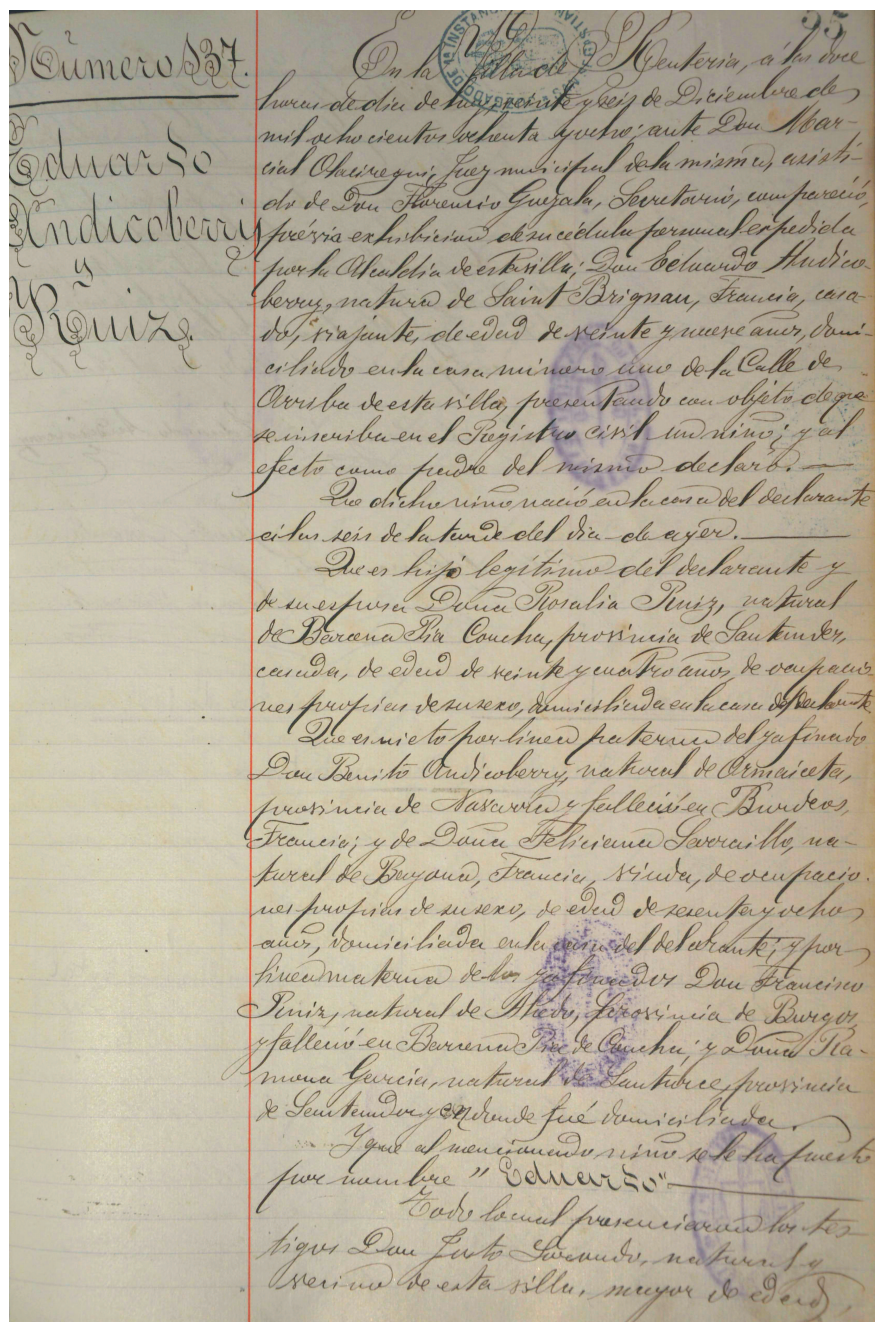 95
Número 137.
Eduardo
Andicoberry
y
Ruiz.
En la Villa de Renteria, á las doce
horas de dia de hoy, veinte y seis de Diciembre de
mil ochocientos ochenta y ocho; ante Don Mar-
cial Olaciregui, Juez municipal de la misma, asisti-
do de Don Florencio Guezala, Secretario, compareció,
prévia exhibicion de su cédula personal expedida
por la Alcaldia de esta villa; Don Eduardo Andico-
berry, natural de Saint Brignau, Francia, casa-
do, viajante, de edad de veinte y nueve años, domi-
ciliado en la casa número uno de la Calle de
Arriba de esta villa, presentando con objeto de que
se inscriba en el Registro civil un niño; y al
efecto como padre del mismo declaró.
Que dicho niño nació en la casa del declarante
á las seis de la tarde del dia de ayer.
Que es hijo legítimo del declarante y
de su esposa Doña Rosalia Ruiz, natural
de Barcena Pia Concha, provincia de Santander,
casada, de edad de veinte y cuatro años, de ocupacio-
nes propias de su sexo, domiciliada en la casa del declarante.
Que es nieto por linea paterna del ya finado
Don Benito Andicoberry, natural de Ormaiceta,
provincia de Navarra y falleció en Burdeos,
Francia; y de Doña Feliciana Larraillo, na-
tural de Bayona, Francia, viuda, de ocupacio-
nes propias de su sexo, de edad de sesenta y ocho
años, domiciliada en la casa del delarante; y por
linea materna de los ya finados Don Francisco
Ruiz, natural de provincia de Burgos,
y falleció en Barcena Pie de Concha; y Doña Ra-
mona Garcia, natural de Santurce, provincia
de Santander y en donde fué domiciliada.
Y que al mencionado niño se le ha puesto
por nombre "Eduardo"
Todo lo cual presenciaron los tes-
tigos Don Justo natural y
vecino de esta villa, mayor de edad,